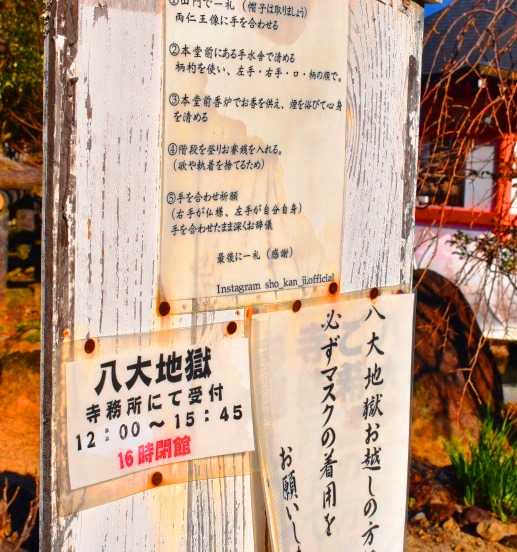 ①山門で一礼（帽子は取りましょう）
両仁王像に手を合わせる
②本堂前にある手水舎で清める
柄杓を使い、左手・右手・口・柄の順で。
③本堂前香炉でお香を供え、煙を浴びて心身
を清める
④階段を登りお賽銭を入れる。
（欲や執着を捨てるため）
⑤手を合わせ祈願
（右手が仏様、左手が自分自身）
手を合わせたまま深くお辞儀
最後に一礼（感謝）
Instagram sho_kan_ji.official
八大地獄
寺務所にて受付
12：00～15：45
16時閉館
八大地獄お越しの方
必ずマスクの着用を
お願いし